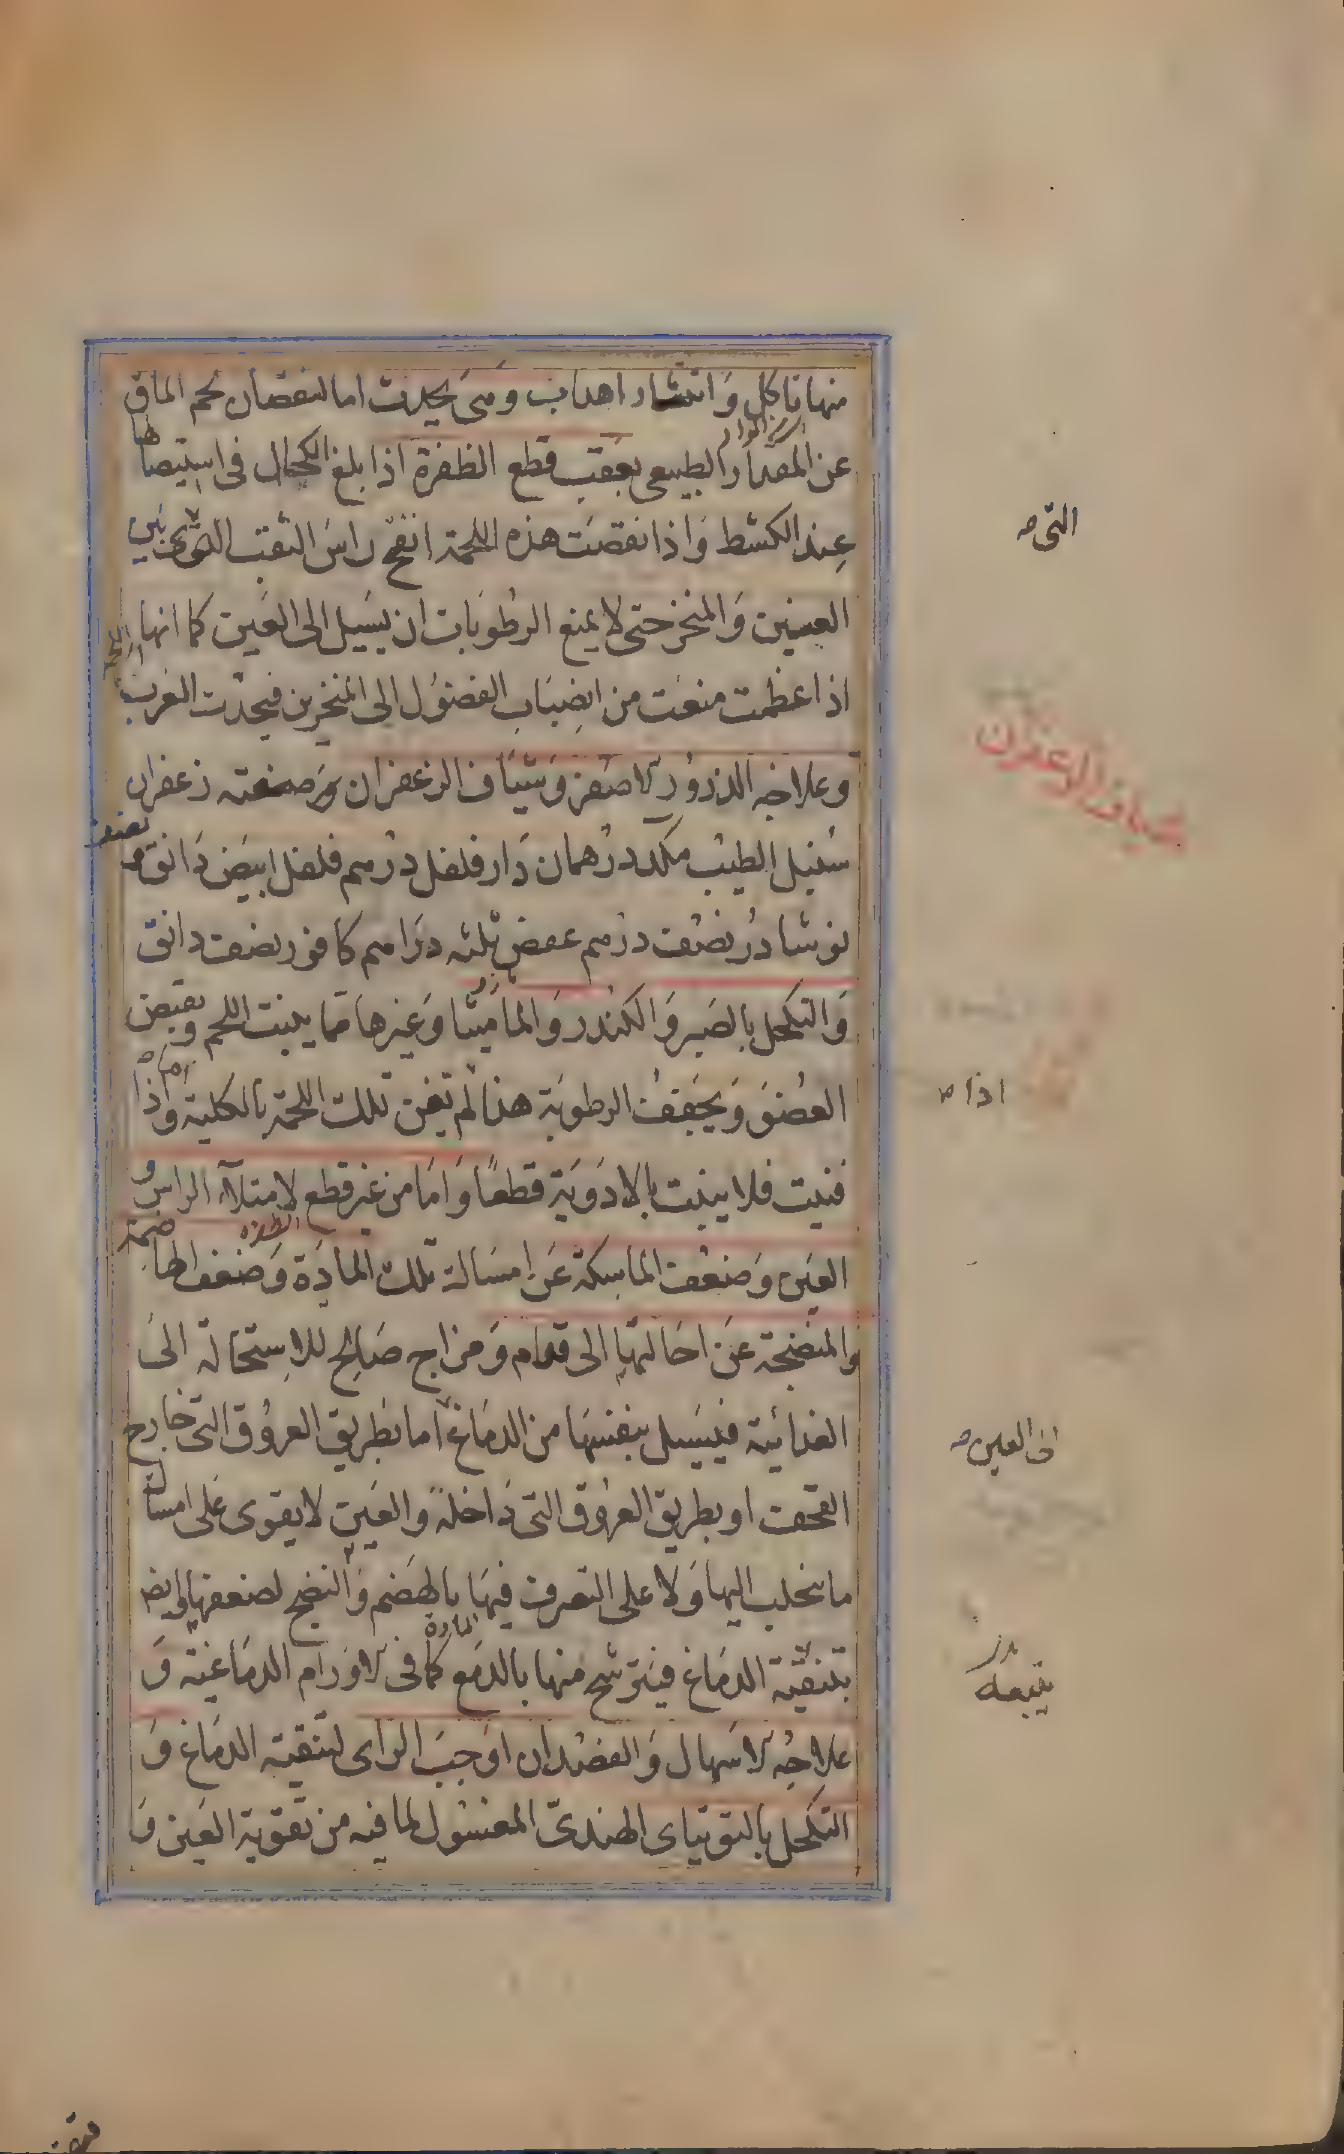 منها تاكل وانتشار اهداب وهى يحدث اما لنقصان لحم الماق
عن المقدار الطبيعى بعقب قطع الظفرة اذا بلغ الكحال فى استيصالها
عند الكشط واذا نقصت هذه اللحمة انفتح راس الثقب الذى بين
العينين والمنخر حتى لا يمنع الرطوبات ان يسيل الى العين كما انها
اذا عظمت منعت من انصباب الفضول الى المنخرين فيحدث الغرب
وعلاجه الذرور الاصفر وشياف الزعفران وصنعته زعفران
سنبل الطيب مكد درهمان دار فلفل درهم فلفل ابيض دانق و نصف
نوشادر نصف درهم عفص ثلثه دراهم كافور نصف دانق
والتكحل بالصبر والكندر والماميثا وغيرها مما ينبت اللحم ويقبض
العضو ويجفف الرطوبة هذا لم تفن تلك اللحمة بالكلية واذا
فنيت فلا ينبت بالادوية قطعا واما من غير قطع لامتلاء الراس و
العين وضعف الماسكة عن امسالة تلك المادة وضعف الهاضمة
والمنضجة عن احالتها الى قوام ومزاج صالح للاستحالة الى
الغدائية فيسيل بنفسها من الدماغ اما بطريق العروق التى خارج
القحف او بطريق العروق التى داخله والعين لا يقوى على امساك
ما ينحلب اليها ولا على التصرف فيها بالهضم والنضج لضعفها
بتنقية الدماغ فيترشح منها بالدمع كما فى الاورام الدماغية و
علاجه الاسهال والفصد ان اوجب الراى لتنقية الدماغ و
التكحل بالتوتياى الهندى المغسول لما فيه من تقوية العين و
التى صح
شياف الزعفران
اذا صح
الى العين صح